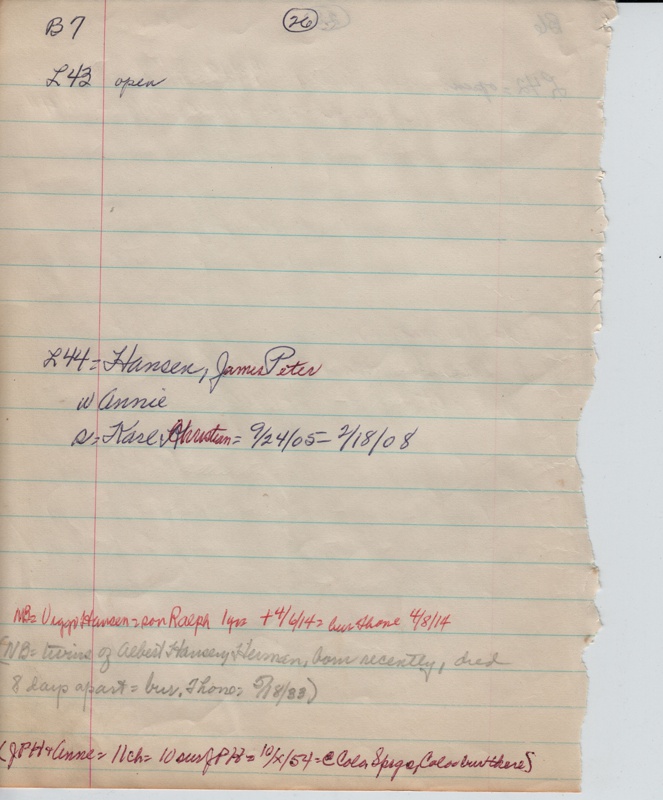 B7
26
L43 open
L44 = Hansen, James Peter
w Annie
s = Karl Christian = 9/24/05 - 2/18/08
NB = Viggo Hansen = son Ralph 1 yr + 4/6/14 = bur thone 4/8/14
(NB = twins of Albert Hansen, Herman, born recently, died
8 days apart = bur. Thone = 5/18/33)
(JPH + Anne = 11 ch = 10 sur JPH = 10/x/54 = @ Colo Spgs, Colo = bur there)